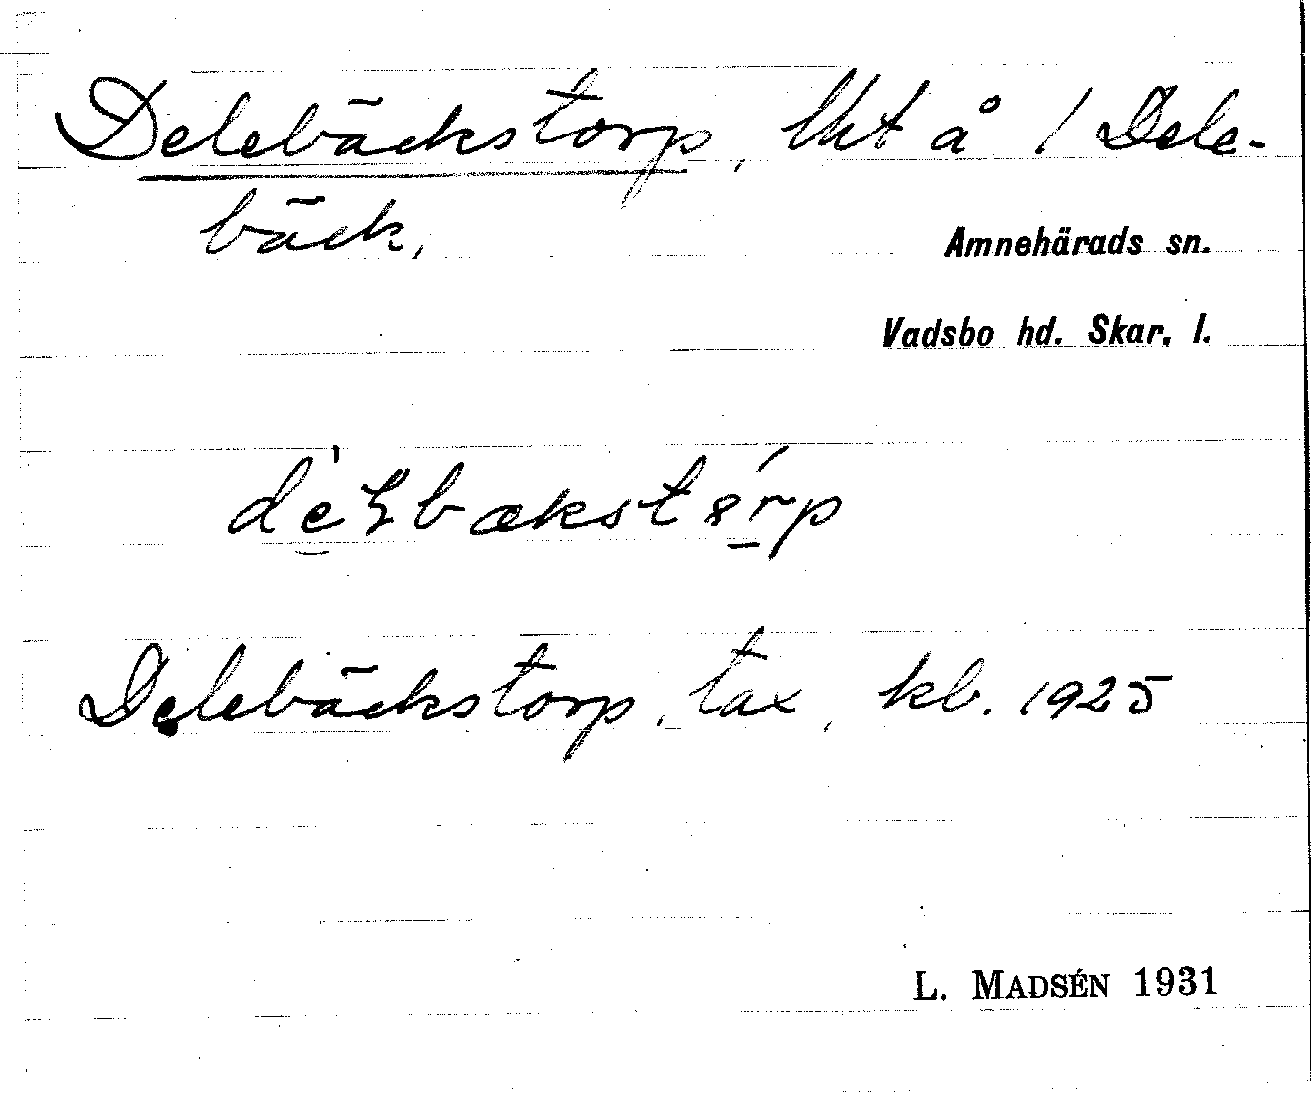 Delebäckstorp, lht å 1 Dele-
bäck,
Amnehärads sn.
Vadsbo hd. Skar. l.
Delebäckstorp, tax, kb. 1925
L. MADSÉN 1931